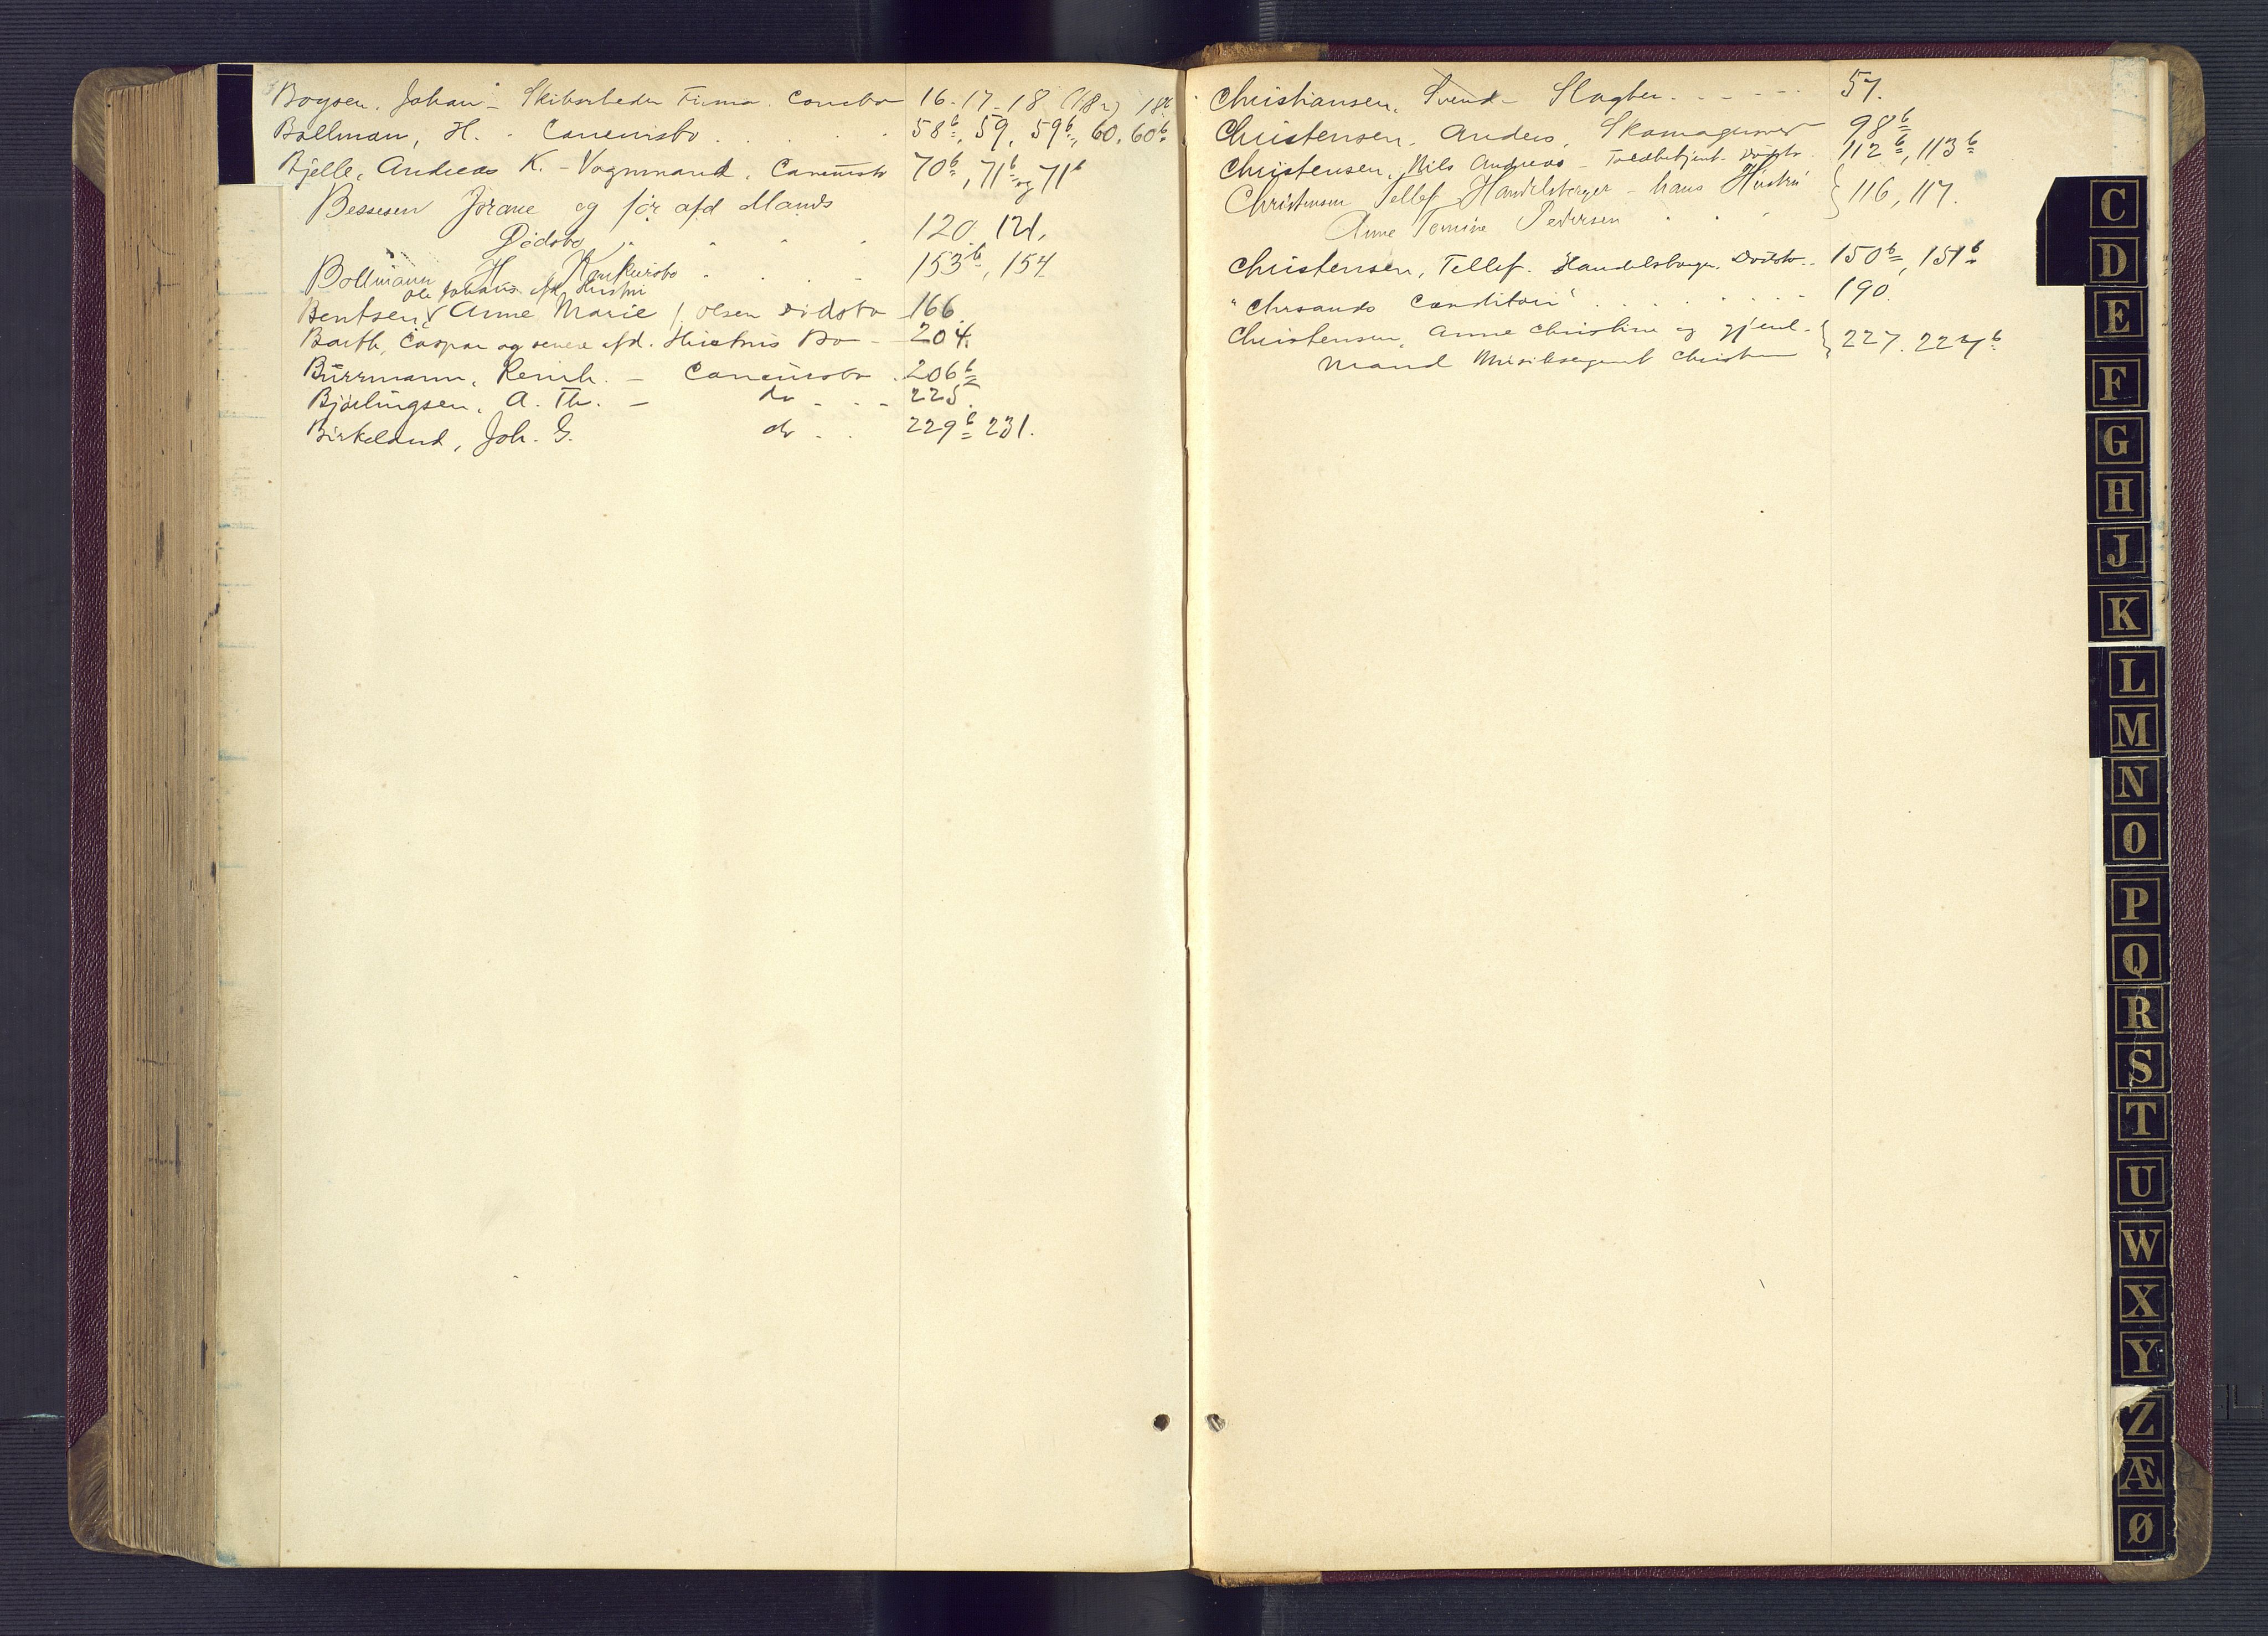 Boysen, Johan - Skibsrheder Firma. Concbo 16. 17. 18 (18a) 18b
Bollman, H. - Concursbo . . . 58b, 59, 59b, 60, 60b
Bjelle, Andreas K. - Vognmand, Concursbo 70b, 71b og 71b
Bessesen Jorane og før afd Mands
Dødsbo . . . . 120. 121.
Bollmann H Konkursbo . . . 153b, 154
Ole Johans afd. Hustru
Bentsen, Anne Marie f. Olsen Dødsbo 166.
Barth, Caspar og senere afd. Hustrus Bo - 204.
Burrmann, Reinh. - Concursbo . 206b
Bjørlingsen, A. Th. - do - - - 225.
Birkeland, Joh. G. do . . 229b 231.
Christiansen, Svend - Slagter. - - - - - 57.
Christensen, Anders, Skomagersvend 98b
Christensen, Nils Andreas - Toldbetjent. Dødsbo. 112b, 113b
Christensen Tellef Handelsborger - hans Hustru } 116, 117.
Anne Tomine Pedersen . . .
Christensen, Tellef. Handelsborger. Dødsbo.. 150b, 151b
"Chrsands Conditori" . . . . . . . 190.
Christensen, Anne Christine og gjenl. } 227. 227b
Mand Musiksergent Christensen
C
D
E
F
G
H
J
K
L
M
N
O
P
Q
R
S
T
U
W
X
Y
Z
Æ
Ø